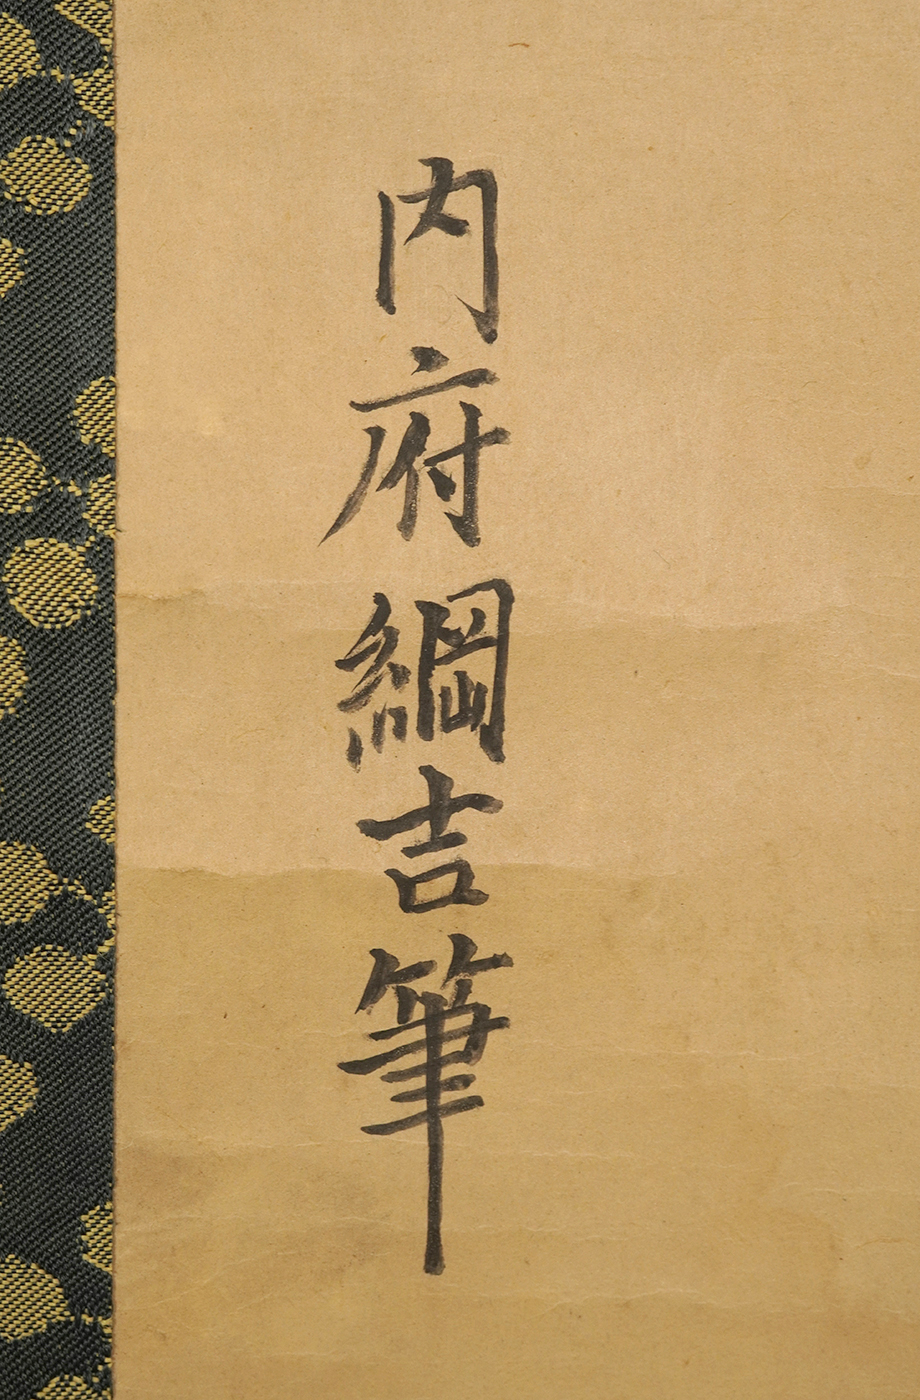 内府綱吉筆